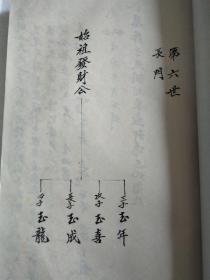 第六世
長門
始祖發財公
三子玉年
次子玉喜
長子玉成
四子玉龍